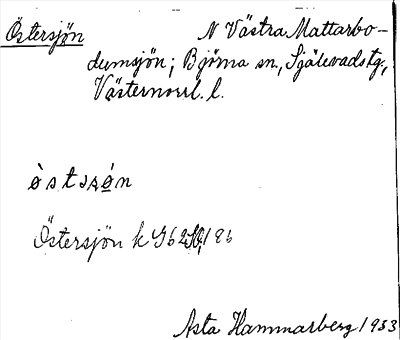 Östersjön N Västra Mattarbo-
dumsjön; Björna sn., Själevadstg,
Västernorrl. l.
östsrǿn
Östersjön k
Asta Hammarberg 1933